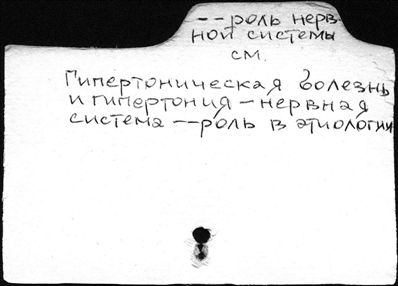 -- роль нерв-
ной системы
см.
Гипертоническая болезнь
и гипертония - нервная
система -- роль в этиологии